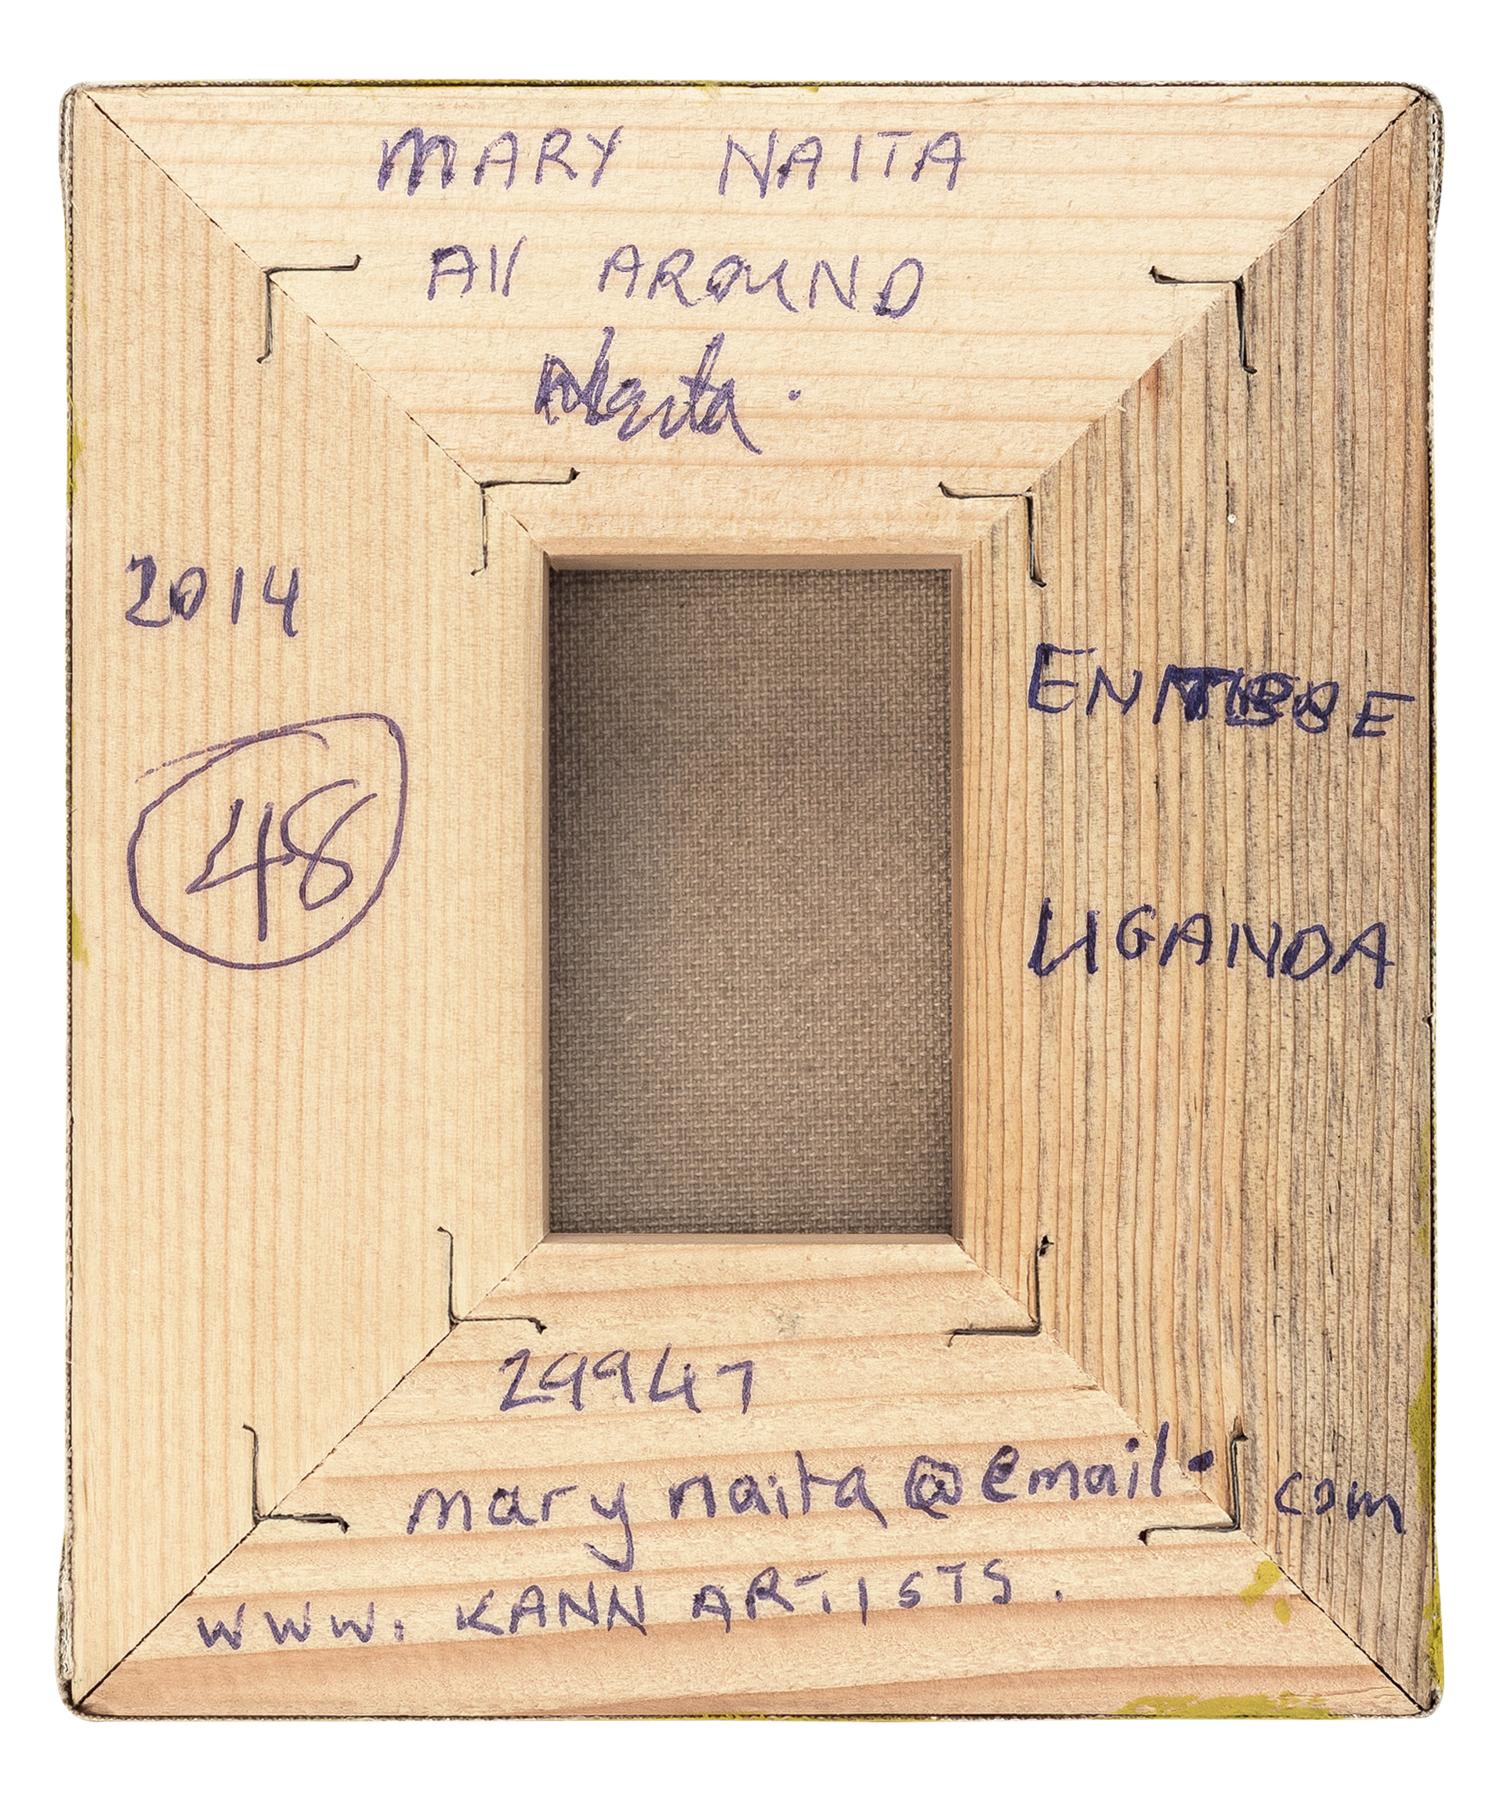 MARY NAITA
All AROUND
Naita.
2014
48
ENTEBBE
UGANDA
29947
mary naita@email.com
www. KANN ARTISTS.